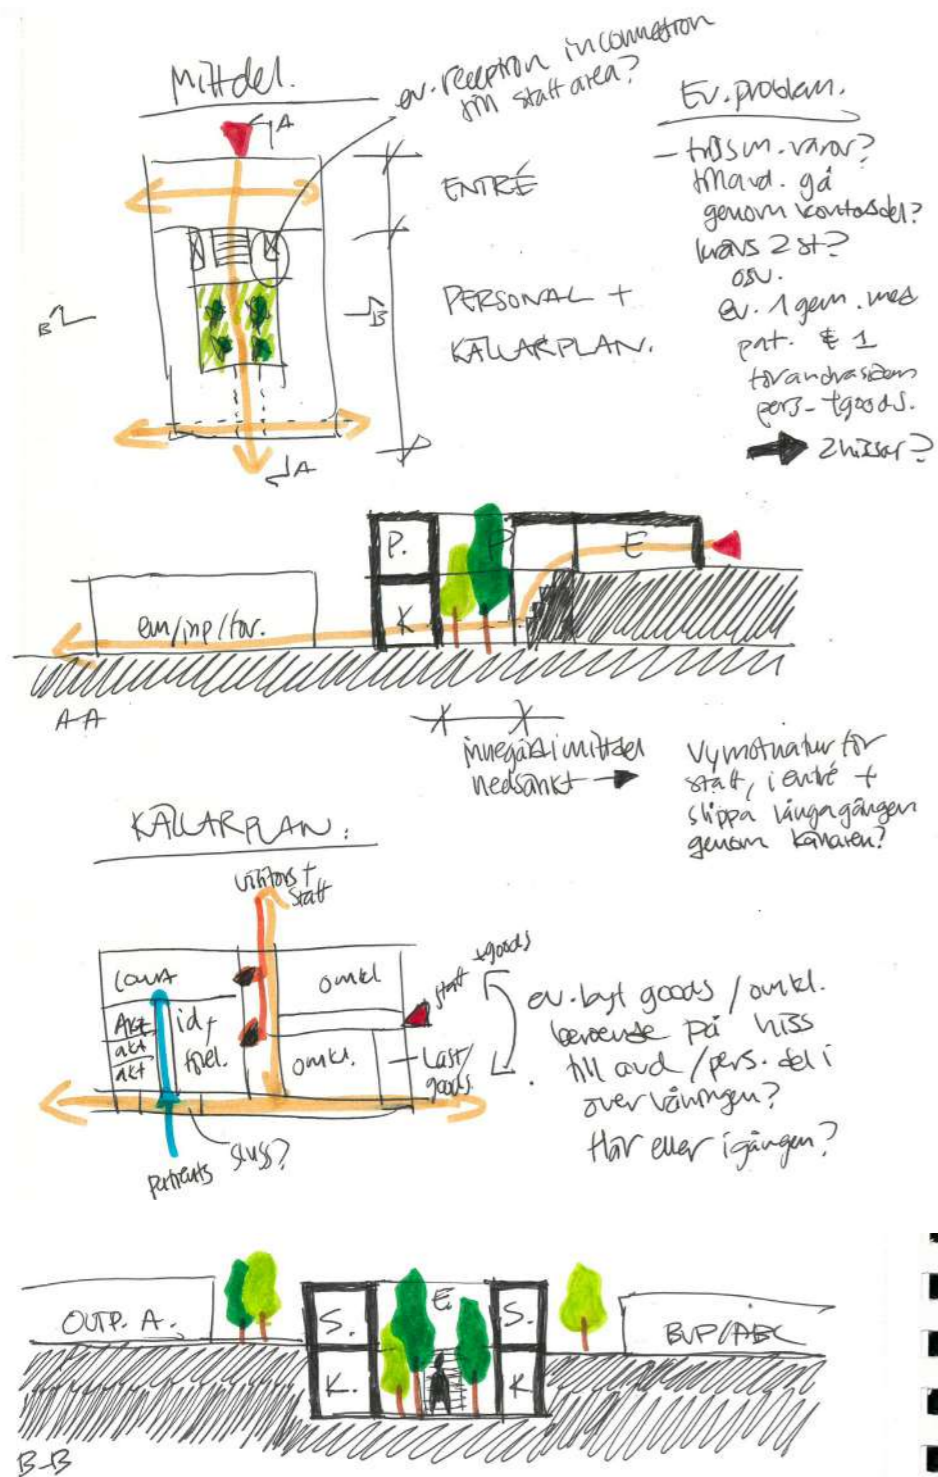 Mittdel.
ev. reception in connection
till staff area?
A
ENTRÉ
PERSONAL +
KÄLLARPLAN.
B
B
A
Ev. problem.
gå
genom kontorsdel?
krävs 2 st?
osv.
ev. 1 gem. med
pat. & 1
för andra sidan
pers- + goods.
2 hissar?
P.
P
E
K
A-A
innegård i mittdel
nedsänkt
Vy mot natur för
staff, i entré +
slippa långa gången
genom källaren?
KÄLLARPLAN:
visitors +
staff
omkl
staff
+goods
Akt
akt
akt
id+
omkl.
Last/
goods
sluss?
patients
ev. byt goods / omkl.
beroende på hiss
till avd / pers. del i
övervåningen?
Här eller i gången?
OUTP. A.
S.
E.
S.
K.
K
BUP/ABC
B-B